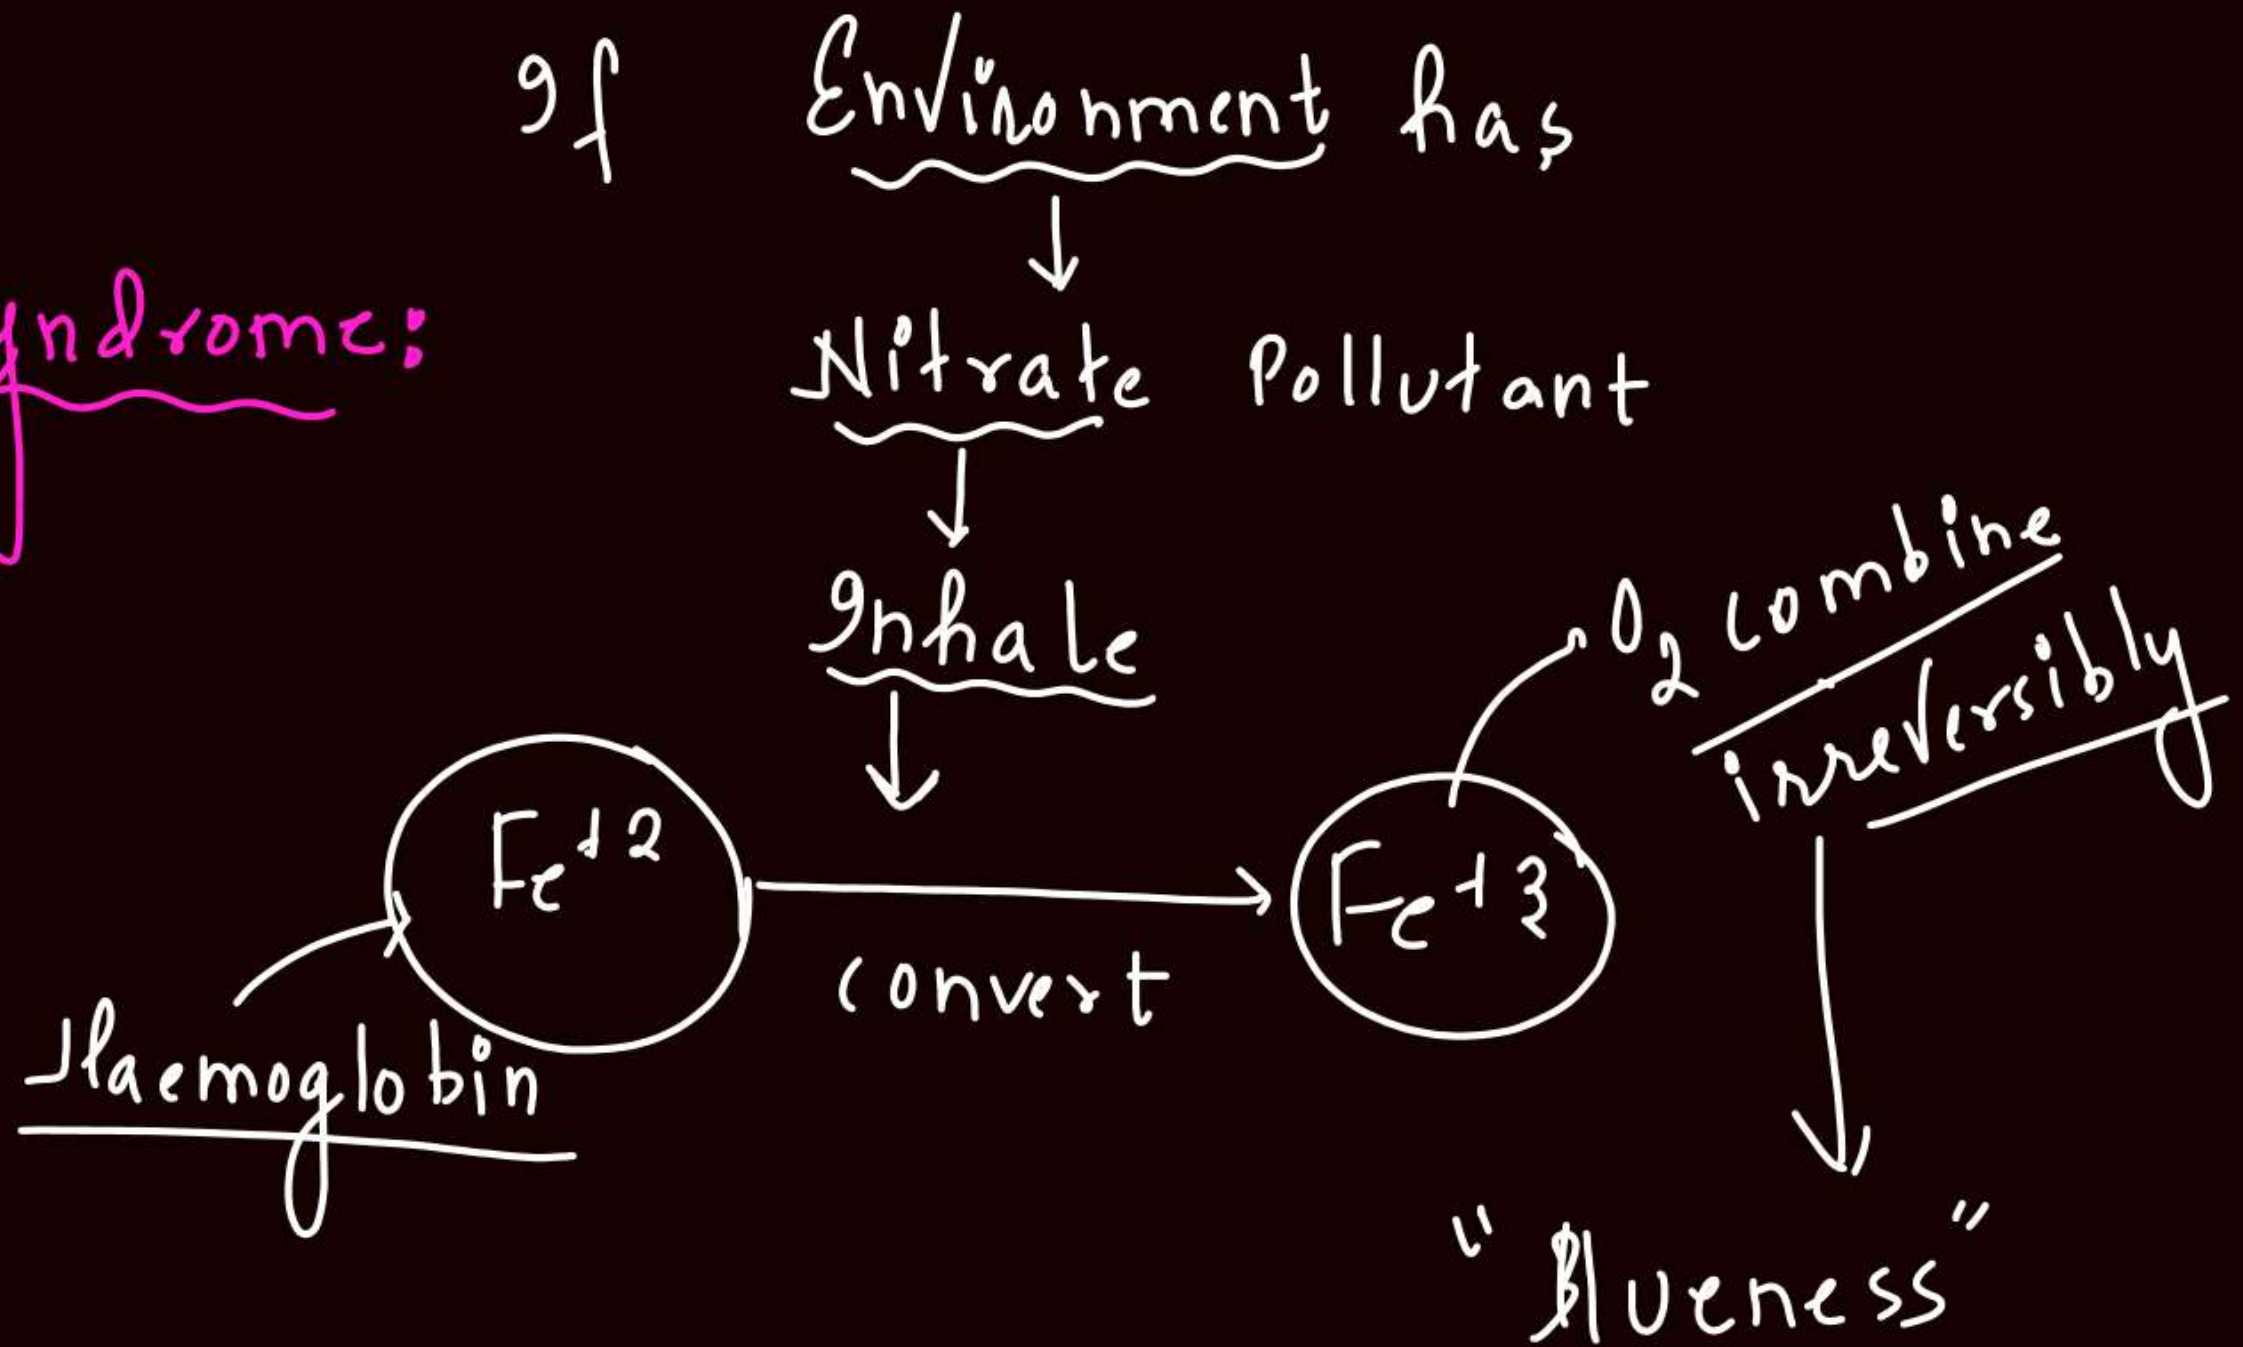 If Environment has
yndrome:
Nitrate Pollutant
Inhale
O2 combine
irreversibly
Fe+2
Fe+3
convert
Haemoglobin
"Blueness"